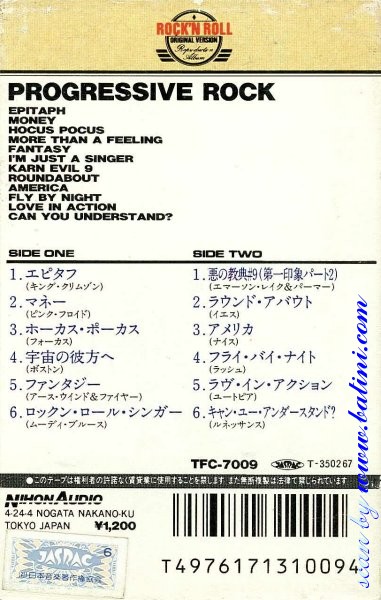 ROCK'N ROLL
ORIGINAL VERSION
Reproduction
Album
PROGRESSIVE ROCK
EPITAPH
MONEY
HOCUS POCUS
MORE THAN A FEELING
FANTASY
I'M JUST A SINGER
KARN EVIL 9
ROUNDABOUT
AMERICA
FLY BY NIGHT
LOVE IN ACTION
CAN YOU UNDERSTAND?
SIDE ONE
1.エピタフ
(キング・クリムゾン)
2.マネー
(ピンク・フロイド)
3.ホーカス・ポーカス
(フォーカス)
4.宇宙の彼方へ
(ボストン)
5.ファンタジー
(アース・ウインド&ファイヤー)
6.ロックン・ロール・シンガー
(ムーディ・ブルース)
SIDE TWO
1.悪の教典#9(第一印象パート2)
(エマーソン・レイク&パーマー)
2.ラウンド・アバウト
(イエス)
3.アメリカ
(ナイス)
4.フライ・バイ・ナイト
(ラッシュ)
5.ラヴ・イン・アクション
(ユートピア)
6.キャン・ユー・アンダースタンド?
(ルネッサンス)
TFC-7009 JASRAC T-350267
●このテープは権利者の許諾なく賃貸業に使用することを禁じます また無断複製は法律で禁じられています
NIHON AUDIO
4-24-4 NOGATA NAKANO-KU
TOKYO JAPAN ¥1,200
JASRAC
6
日本音楽著作権協会
T4976171310094
scan by www.batini.com